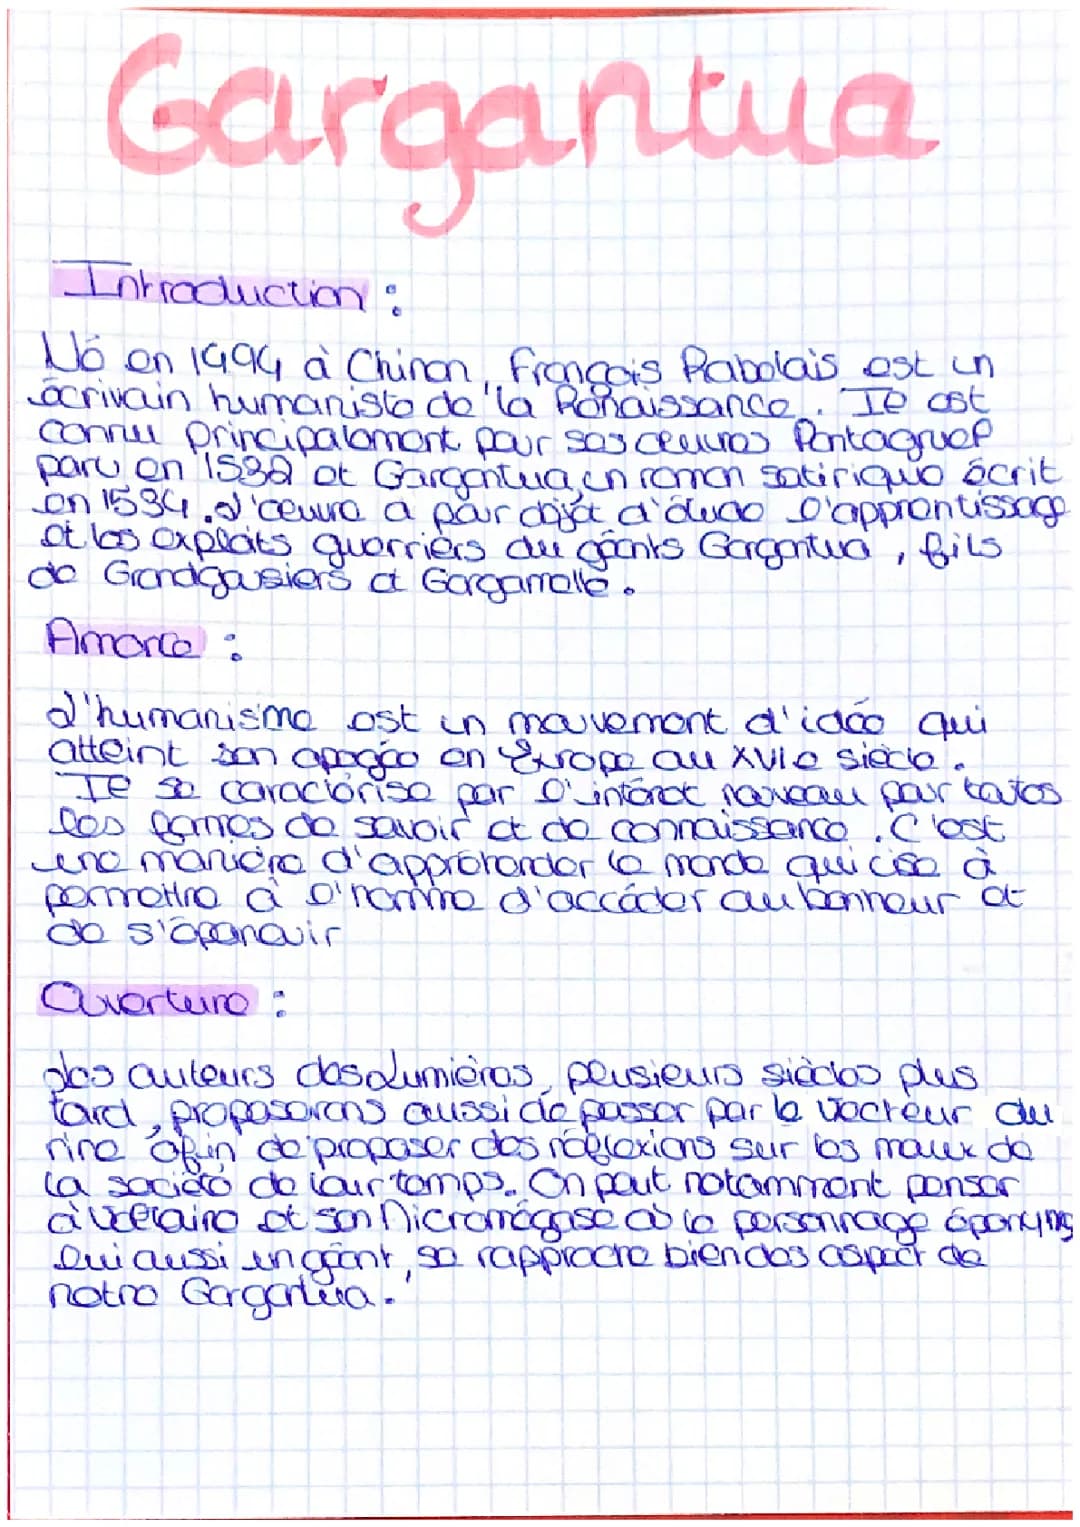 Gargantua
Introduction :
Né en 1494 à Chinon, François Rabelais est un
écrivain humaniste de la Renaissance. Il est
connu principalement pour ses œuvres Pantagruel
paru en 1532 et Gargantua, un roman satirique écrit
en 1534. L'œuvre a pour objet d'étude l'apprentissage
et les exploits guerriers du géants Gargantua, fils
de Grandgousiers et Gargamelle.
Amorce :
L'humanisme est un mouvement d'idée qui
atteint son apogée en Europe au XVIe siècle.
Il se caractérise par l'intérêt nouveau pour toutes
les formes de savoir et de connaissance. C'est
une manière d'appréhender le monde qui vise à
permettre à l'homme d'accéder au bonheur et
de s'épanouir
Ouverture :
Les auteurs des Lumières, plusieurs siècles plus
tard, proposerons aussi de passer par le vecteur du
rire afin de proposer des réflexions sur les maux de
la société de leur temps. On peut notamment penser
à Voltaire et son Micromégas où le personnage éponyme
lui aussi un géant, se rapproche bien des aspect de
notre Gargantua.